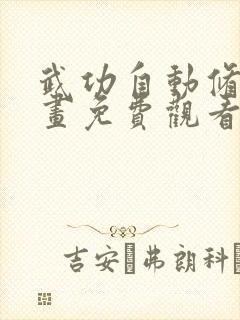 武功自動修
畫免費觀看
吉安·弗朗科·